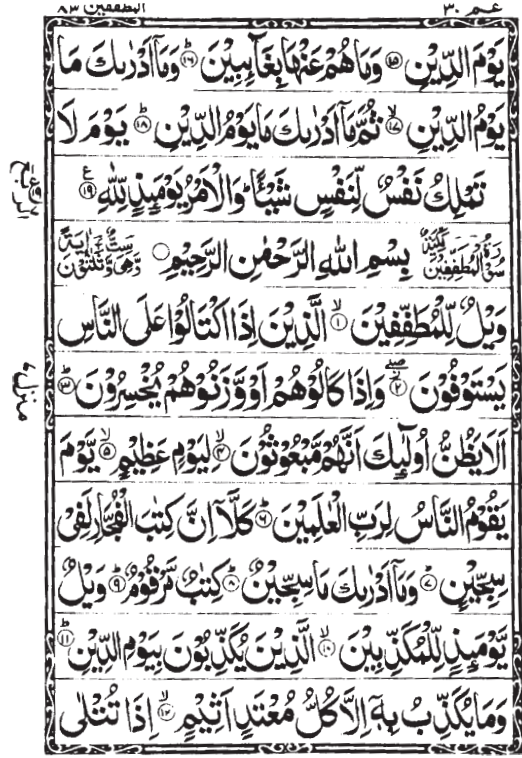 عم ٣٠
المطففين ٨٣
يَوْمَ الدِّيْنِ ﴿۱۵﴾ وَمَا هُمْ عَنْهَا بِغَآىِٕبِيْنَ ﴿۱۶﴾ؕ وَمَاۤ اَدْرٰىكَ مَا
يَوْمُ الدِّيْنِ ﴿۱۷﴾ۙ ثُمَّ مَاۤ اَدْرٰىكَ مَا يَوْمُ الدِّيْنِ ﴿۱۸﴾ؕ يَوْمَ لَا
تَمْلِكُ نَفْسٌ لِّنَفْسٍ شَيْـًٔا ؕ وَالْاَمْرُ يَوْمَىِٕذٍ لِّلّٰهِ ﴿۱۹﴾ ع
سُوْرَةُ الْمُطَفِّفِيْنَ مَكِّيَّةٌ بِسْمِ اللّٰهِ الرَّحْمٰنِ الرَّحِيْمِ وَّهِيَ سِتٌّ وَّثَلٰثُوْنَ اٰيَةً
وَيْلٌ لِّلْمُطَفِّفِيْنَ ﴿۱﴾ۙ الَّذِيْنَ اِذَا اكْتَالُوْا عَلَى النَّاسِ
يَسْتَوْفُوْنَ ﴿۲﴾ۖ وَاِذَا كَالُوْهُمْ اَوْ وَّزَنُوْهُمْ يُخْسِرُوْنَ ﴿۳﴾ؕ
اَلَا يَظُنُّ اُولٰٓىِٕكَ اَنَّهُمْ مَّبْعُوْثُوْنَ ﴿۴﴾ۙ لِيَوْمٍ عَظِيْمٍ ﴿۵﴾ۙ يَّوْمَ
يَقُوْمُ النَّاسُ لِرَبِّ الْعٰلَمِيْنَ ﴿۶﴾ؕ كَلَّاۤ اِنَّ كِتٰبَ الْفُجَّارِ لَفِيْ
سِجِّيْنٍ ﴿۷﴾ؕ وَمَاۤ اَدْرٰىكَ مَا سِجِّيْنٌ ﴿۸﴾ؕ كِتٰبٌ مَّرْقُوْمٌ ﴿۹﴾ؕ وَيْلٌ
يَّوْمَىِٕذٍ لِّلْمُكَذِّبِيْنَ ﴿۱۰﴾ۙ الَّذِيْنَ يُكَذِّبُوْنَ بِيَوْمِ الدِّيْنِ ﴿۱۱﴾ؕ
وَمَا يُكَذِّبُ بِهٖۤ اِلَّا كُلُّ مُعْتَدٍ اَثِيْمٍ ﴿۱۲﴾ۙ اِذَا تُتْلٰى
منزل ۷